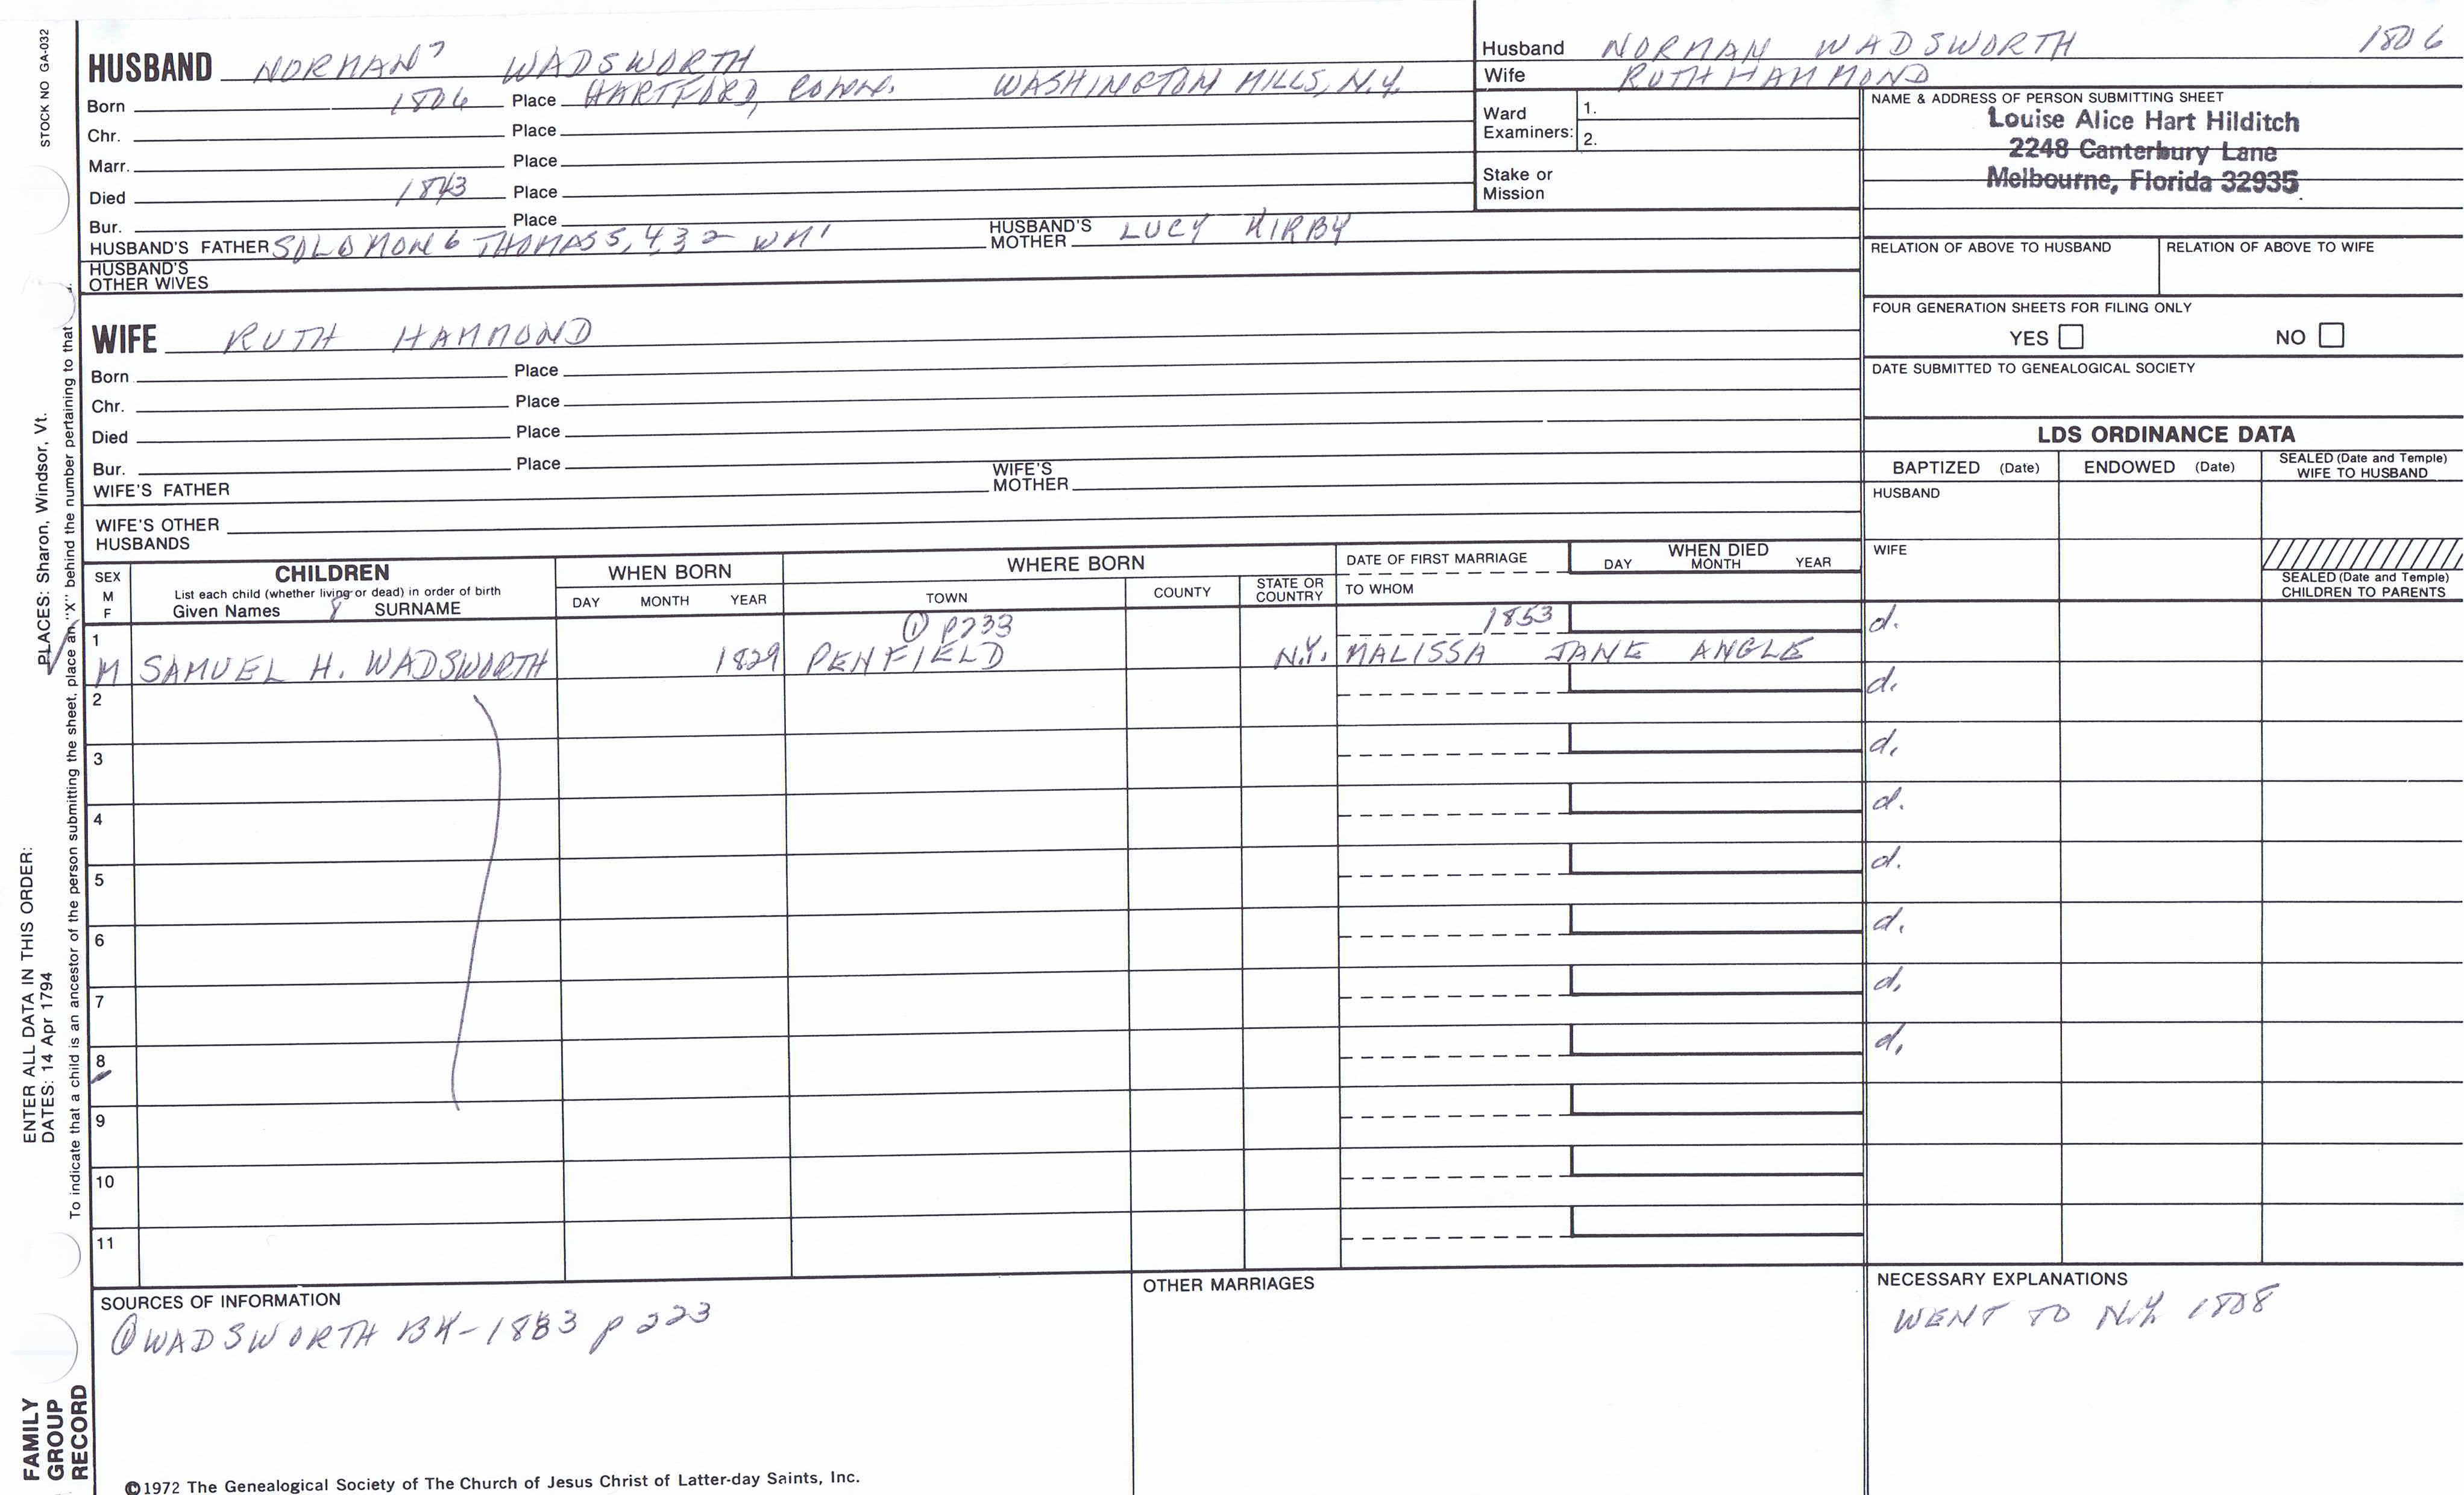 STOCK NO GA-032
HUSBAND NORMAN7 WADSWORTH
Born 1806 Place HARTFORD, CONN. WASHINGTON MILLS, N.Y.
Chr. Place
Marr. Place
Died 1843 Place
Bur. Place
HUSBAND'S FATHER SOLOMON 6 THOMAS 5, 4 3 2 WM1 HUSBAND'S MOTHER LUCY KIRBY
HUSBAND'S OTHER WIVES
WIFE RUTH HAMMOND
Born Place
Chr. Place
Died Place
Bur. Place
WIFE'S FATHER WIFE'S MOTHER
WIFE'S OTHER HUSBANDS
Husband NORMAN WADSWORTH 1806
Wife RUTH HAMMOND
Ward Examiners: 1.
2.
Stake or Mission
NAME & ADDRESS OF PERSON SUBMITTING SHEET
Louise Alice Hart Hilditch
2248 Canterbury Lane
Melbourne, Florida 32935
RELATION OF ABOVE TO HUSBAND RELATION OF ABOVE TO WIFE
FOUR GENERATION SHEETS FOR FILING ONLY
YES NO
DATE SUBMITTED TO GENEALOGICAL SOCIETY
LDS ORDINANCE DATA
BAPTIZED (Date) ENDOWED (Date) SEALED (Date and Temple) WIFE TO HUSBAND
HUSBAND
WIFE
SEALED (Date and Temple) CHILDREN TO PARENTS
SEX M F
CHILDREN
List each child (whether living or dead) in order of birth
Given Names 8 SURNAME
WHEN BORN
DAY MONTH YEAR
WHERE BORN
TOWN COUNTY STATE OR COUNTRY
DATE OF FIRST MARRIAGE
TO WHOM
WHEN DIED
DAY MONTH YEAR
1 ① P233 1853 d.
M SAMUEL H. WADSWORTH 1829 PENFIELD N.Y. MALISSA JANE ANGLE
2 d.
3 d.
4 d.
5 d.
6 d.
7 d.
8 d.
9
10
11
SOURCES OF INFORMATION
① WADSWORTH BK-1883 p 223
OTHER MARRIAGES
NECESSARY EXPLANATIONS
WENT TO N.Y. 1808
©1972 The Genealogical Society of The Church of Jesus Christ of Latter-day Saints, Inc.
FAMILY GROUP RECORD
ENTER ALL DATA IN THIS ORDER:
DATES: 14 Apr 1794 PLACES: Sharon, Windsor, Vt.
To indicate that a child is an ancestor of the person submitting the sheet, place an "X" behind the number pertaining to that